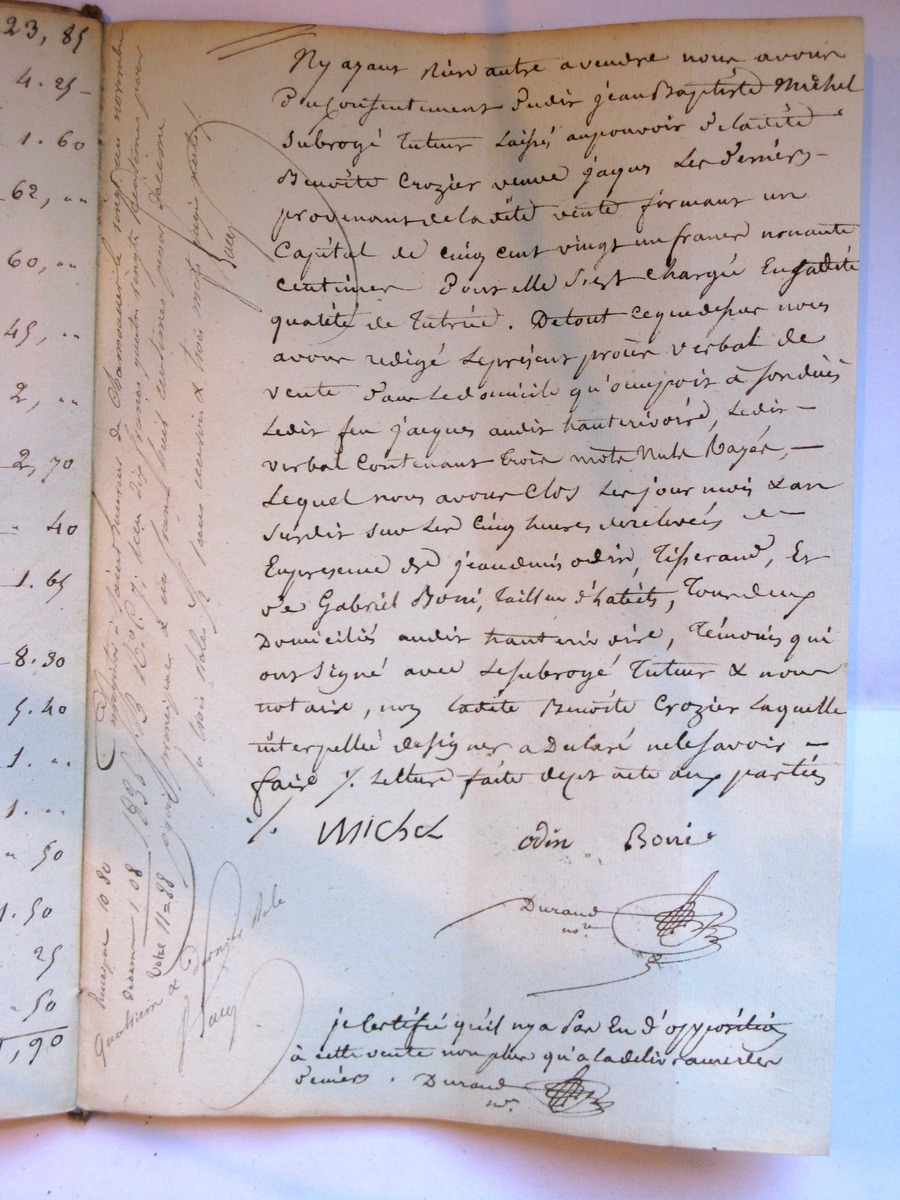 23, 85
4. 25
1. 60
62, ..
60, ..
45, ..
2, ..
2, 70
. 40
1. 65
8. 30
5. 40
1. ..
1. ..
. 50
1. 50
25
. 50
1, 90
N'y ayant Rien autre a vendre nous avons
Du Consentement Dudit jean Baptiste Michel
Subrogé Tuteur Laissés au pouvoir De ladite
Benoîte Crozier veuve jaques Les Deniers
provenants de ladite vente formant un
Capital de cinq cent vingt un francs nonante
Centimes Dont elle S'est Chargée En sadite
qualité de Tutrice. De tout ce que dessus nous
avons redigé Le present procès verbal de
vente Dans Le domicile
Ledit feu jacques audit hauterivoire, Ledit
verbal Contenant trois mots Nuls Rayés,
Lequel nous avons Clos Les jour mois & an
Susdit Sur Les Cinq heures de relevée
En presence de jean denis odin, Tisserand, Et
De Gabriel Boni, Tailleur d'habits, Tous deux
Domiciliés audit hauterivoire, Témoins qui
ont Signé avec Le subrogé Tuteur & nous
notaire, non Ladite Benoîte Crozier Laquelle
interpellée de signer a Déclaré ne le savoir
faire /. Lecture faite aux parties
/. Michel odin Boni
Durand
nre
je Certifie qu'il n'y a Pas Eu d'opposition
à cette vente non plus qu'a la delivrance des
Deniers. Durand
nre
Enregistré à Saint Laurent de Chamousset le vingt un novembre
francs quatre vingts centimes pour
principal & un franc huit centimes pour Decime
Enregre 10 80
Decime 1 08
Total 11=88
Quatrieme & Dernier Role